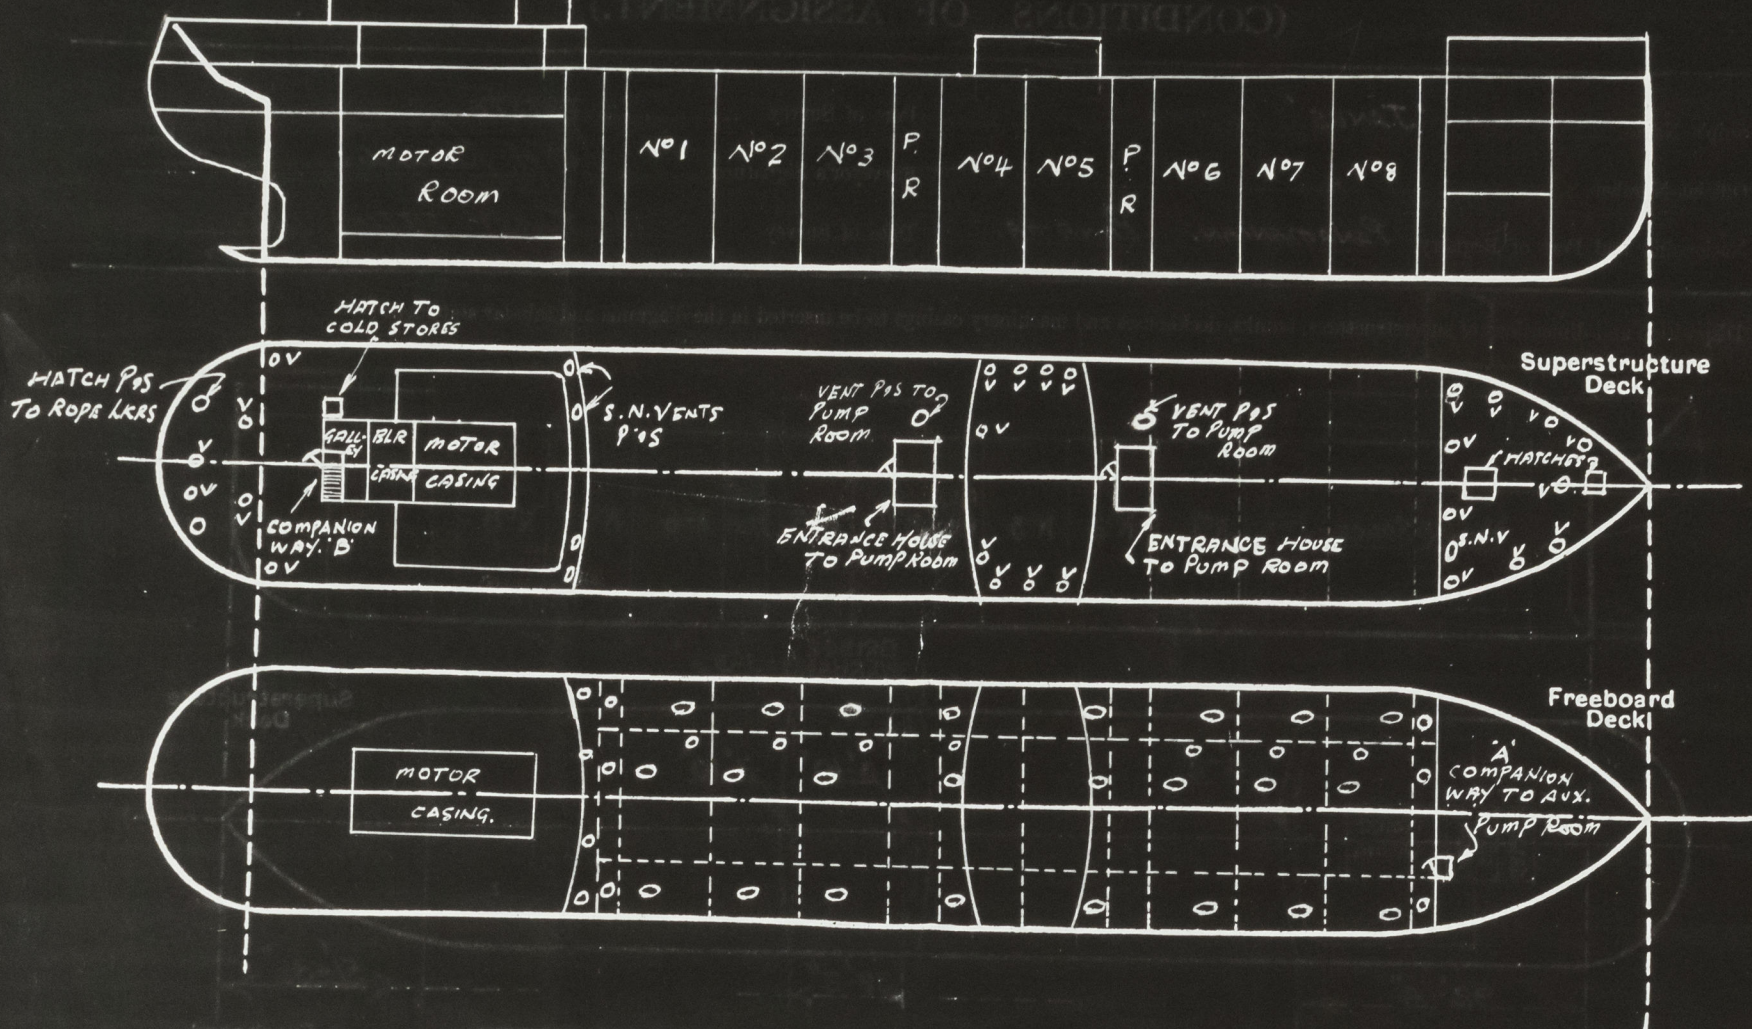 MOTOR
ROOM
No1
No2
No3
P.
R
No4
No5
P.
R
No6
No7
No8
HATCH TO
COLD STORES
HATCH P&S
TO ROPE LKRS
OV
V
O
V
OV
OV
GALL-
EY
BLR
CASING
MOTOR
CASING
COMPANION
WAY. 'B'
S.N. VENTS
P&S
VENT P&S TO
PUMP
ROOM
ENTRANCE HOUSE
TO PUMP ROOM
VENT P&S
TO PUMP
ROOM
ENTRANCE HOUSE
TO PUMP ROOM
Superstructure
Deck
HATCHES
S.N.V
MOTOR
CASING.
Freeboard
Deck
'A'
COMPANION
WAY TO AUX.
PUMP ROOM